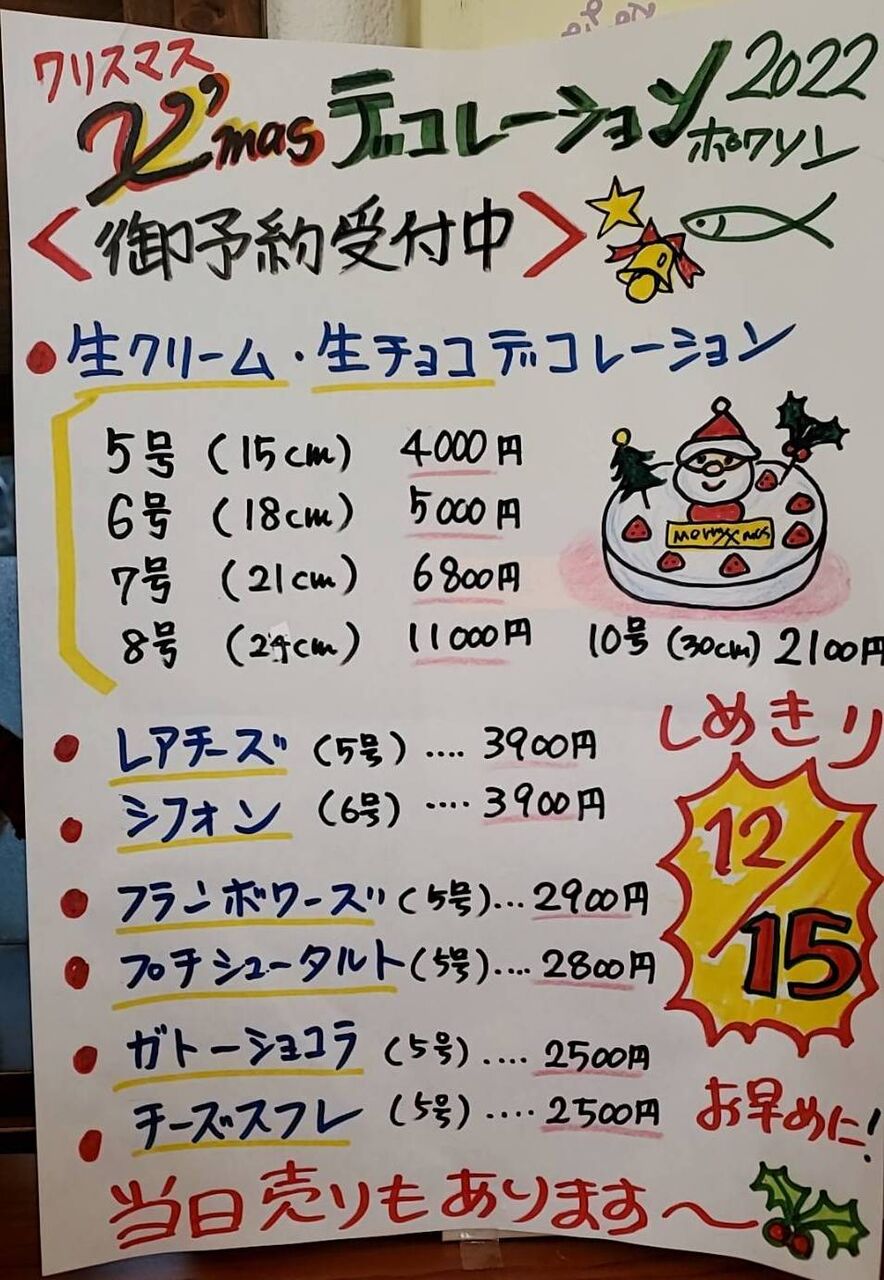 クリスマス
X'masデコレーション 2022
ポワソン
<御予約受付中>
・生クリーム・生チョコデコレーション
5号 (15cm) 4000円
6号 (18cm) 5000円
7号 (21cm) 6800円
8号 (24cm) 11000円 10号 (30cm) 2100円
Merry Xmas
しめきり
12/15
・レアチーズ (5号) .... 3900円
・シフォン (6号) .... 3900円
・フランボワーズ (5号)... 2900円
・プチシュータルト (5号).... 2800円
・ガトーショコラ (5号) .... 2500円
・チーズスフレ (5号) .... 2500円
お早めに!
当日売りもあります〜